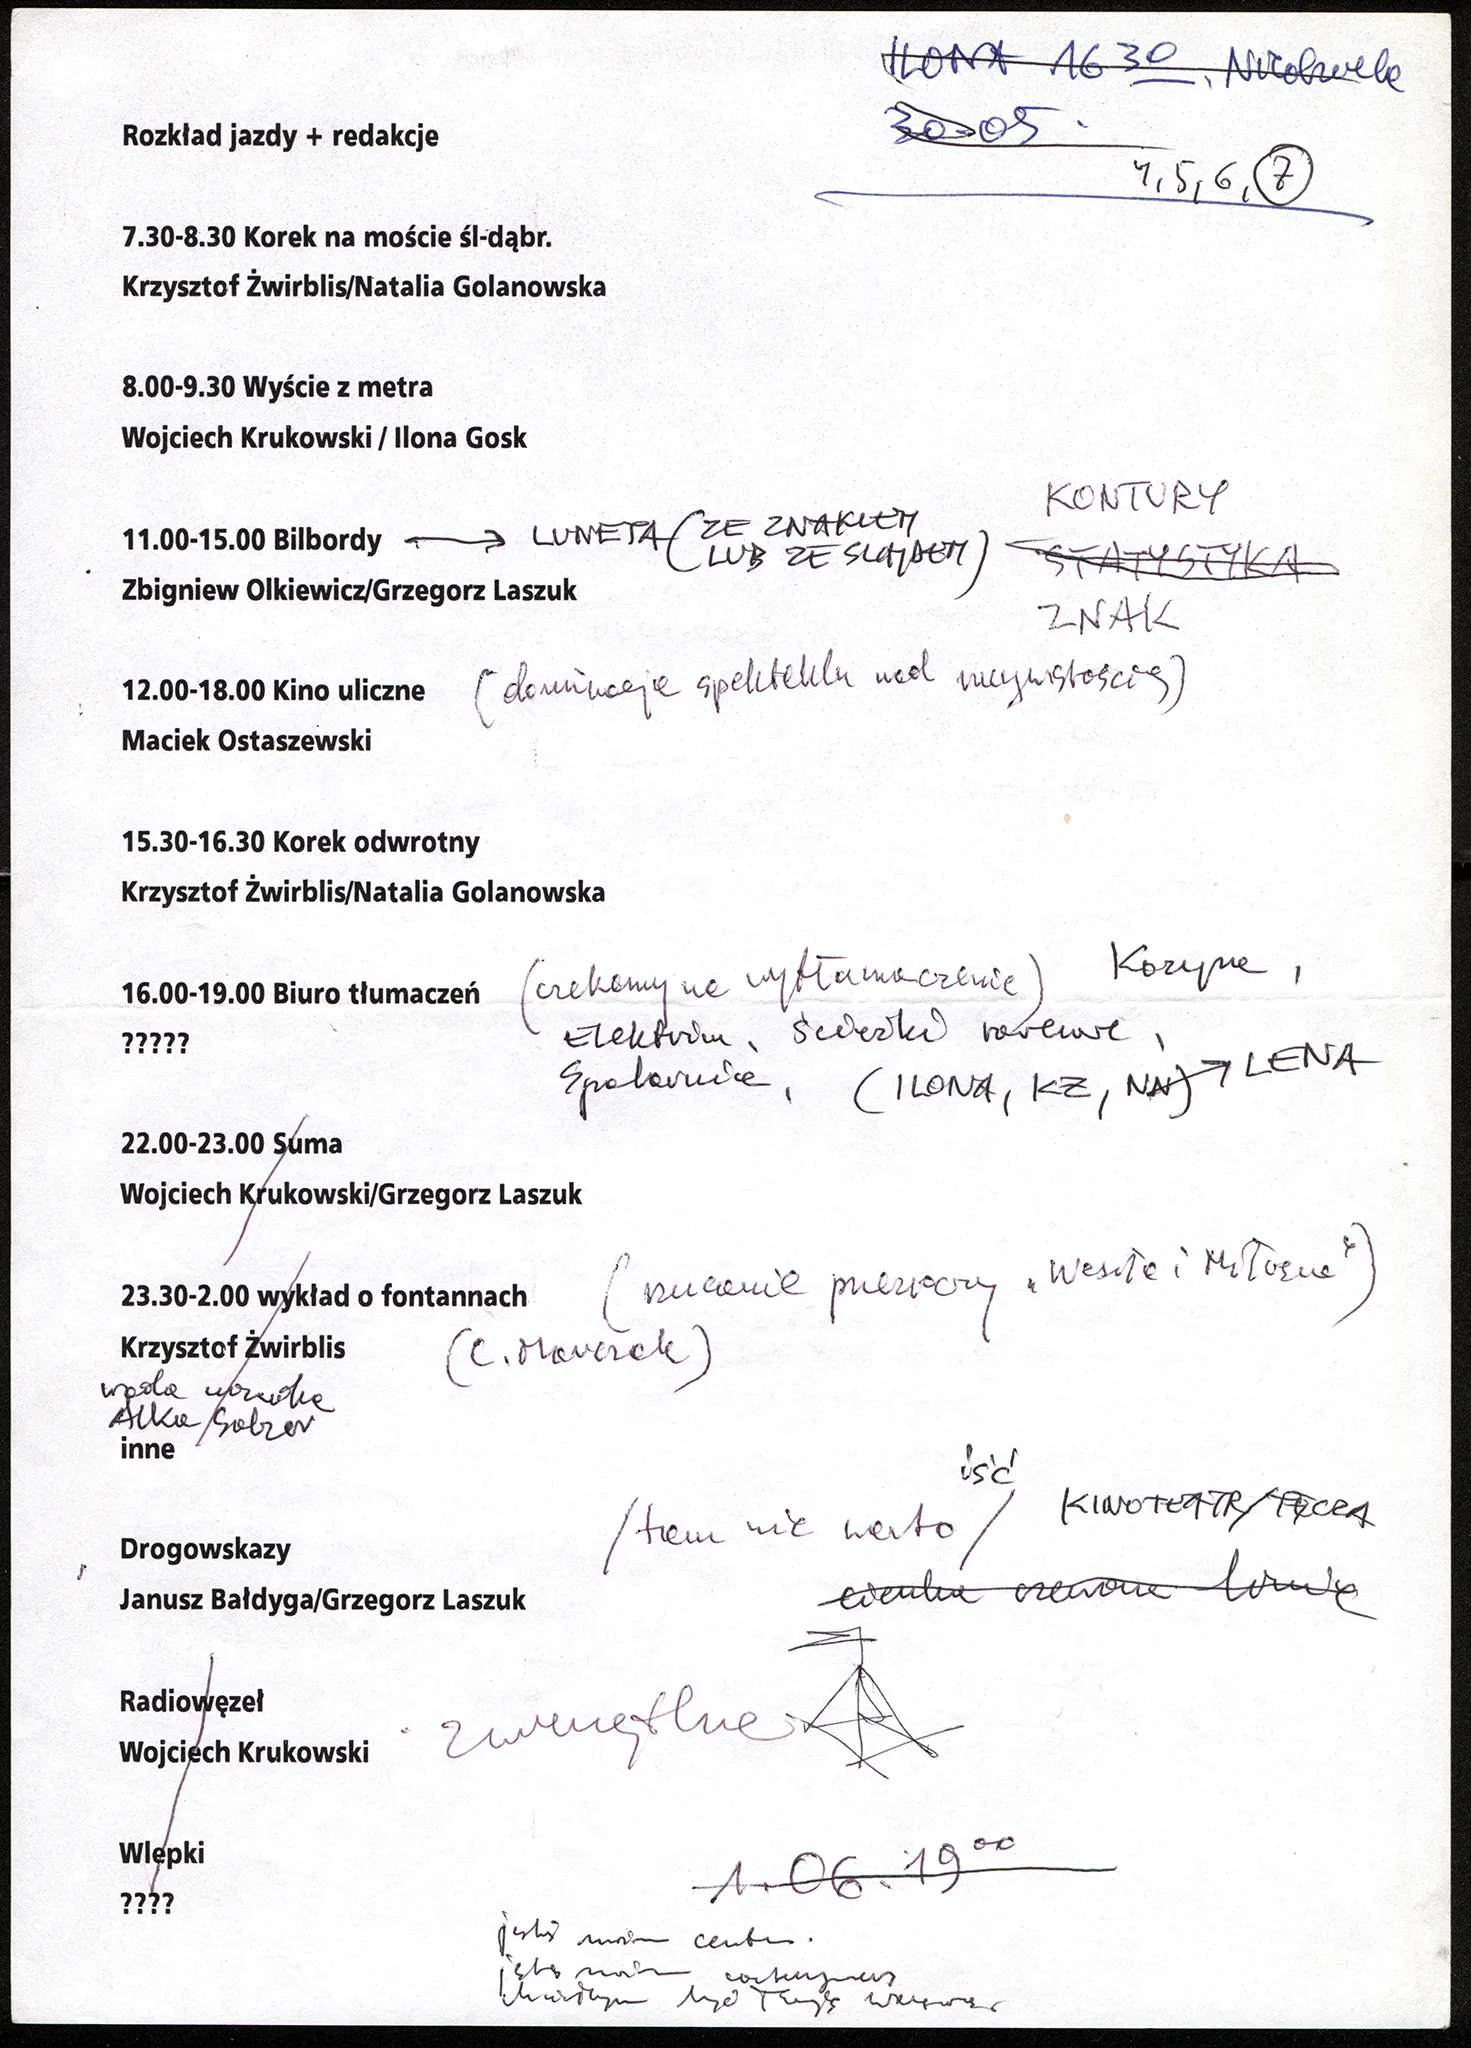 ILONA 16 30,
30.05.
4, 5, 6, 7
Rozkład jazdy + redakcje
7.30-8.30 Korek na moście śl-dąbr.
Krzysztof Żwirblis/Natalia Golanowska
8.00-9.30 Wyście z metra
Wojciech Krukowski / Ilona Gosk
KONTURY
11.00-15.00 Bilbordy → LUNETA (ZE ZNAKIEM
LUB ZE SLAJDEM)
STATYSTYKA
Zbigniew Olkiewicz/Grzegorz Laszuk
ZNAK
12.00-18.00 Kino uliczne (dominacja spektaklu nad rzeczywistością)
Maciek Ostaszewski
15.30-16.30 Korek odwrotny
Krzysztof Żwirblis/Natalia Golanowska
16.00-19.00 Biuro tłumaczeń (czekamy na wytłumaczenie)
????? Elektrim, Ścieżki rowerowe,
Spalarnia, (ILONA, KZ, NN) → LENA
22.00-23.00 Suma
Wojciech Krukowski/Grzegorz Laszuk
23.30-2.00 wykład o fontannach (rzucanie "Wesoła i Miłosna")
Krzysztof Żwirblis (C. Marczak)
woda
inne
iść
/tam nie warto/ KINOTEATR/TĘCZA
Drogowskazy
cienka czerwona linia
Janusz Bałdyga/Grzegorz Laszuk
Radiowęzeł
zewnętrzne
Wojciech Krukowski
Wlepki
1.06. 19 00
????
jesteś moim
jesteś moim
być